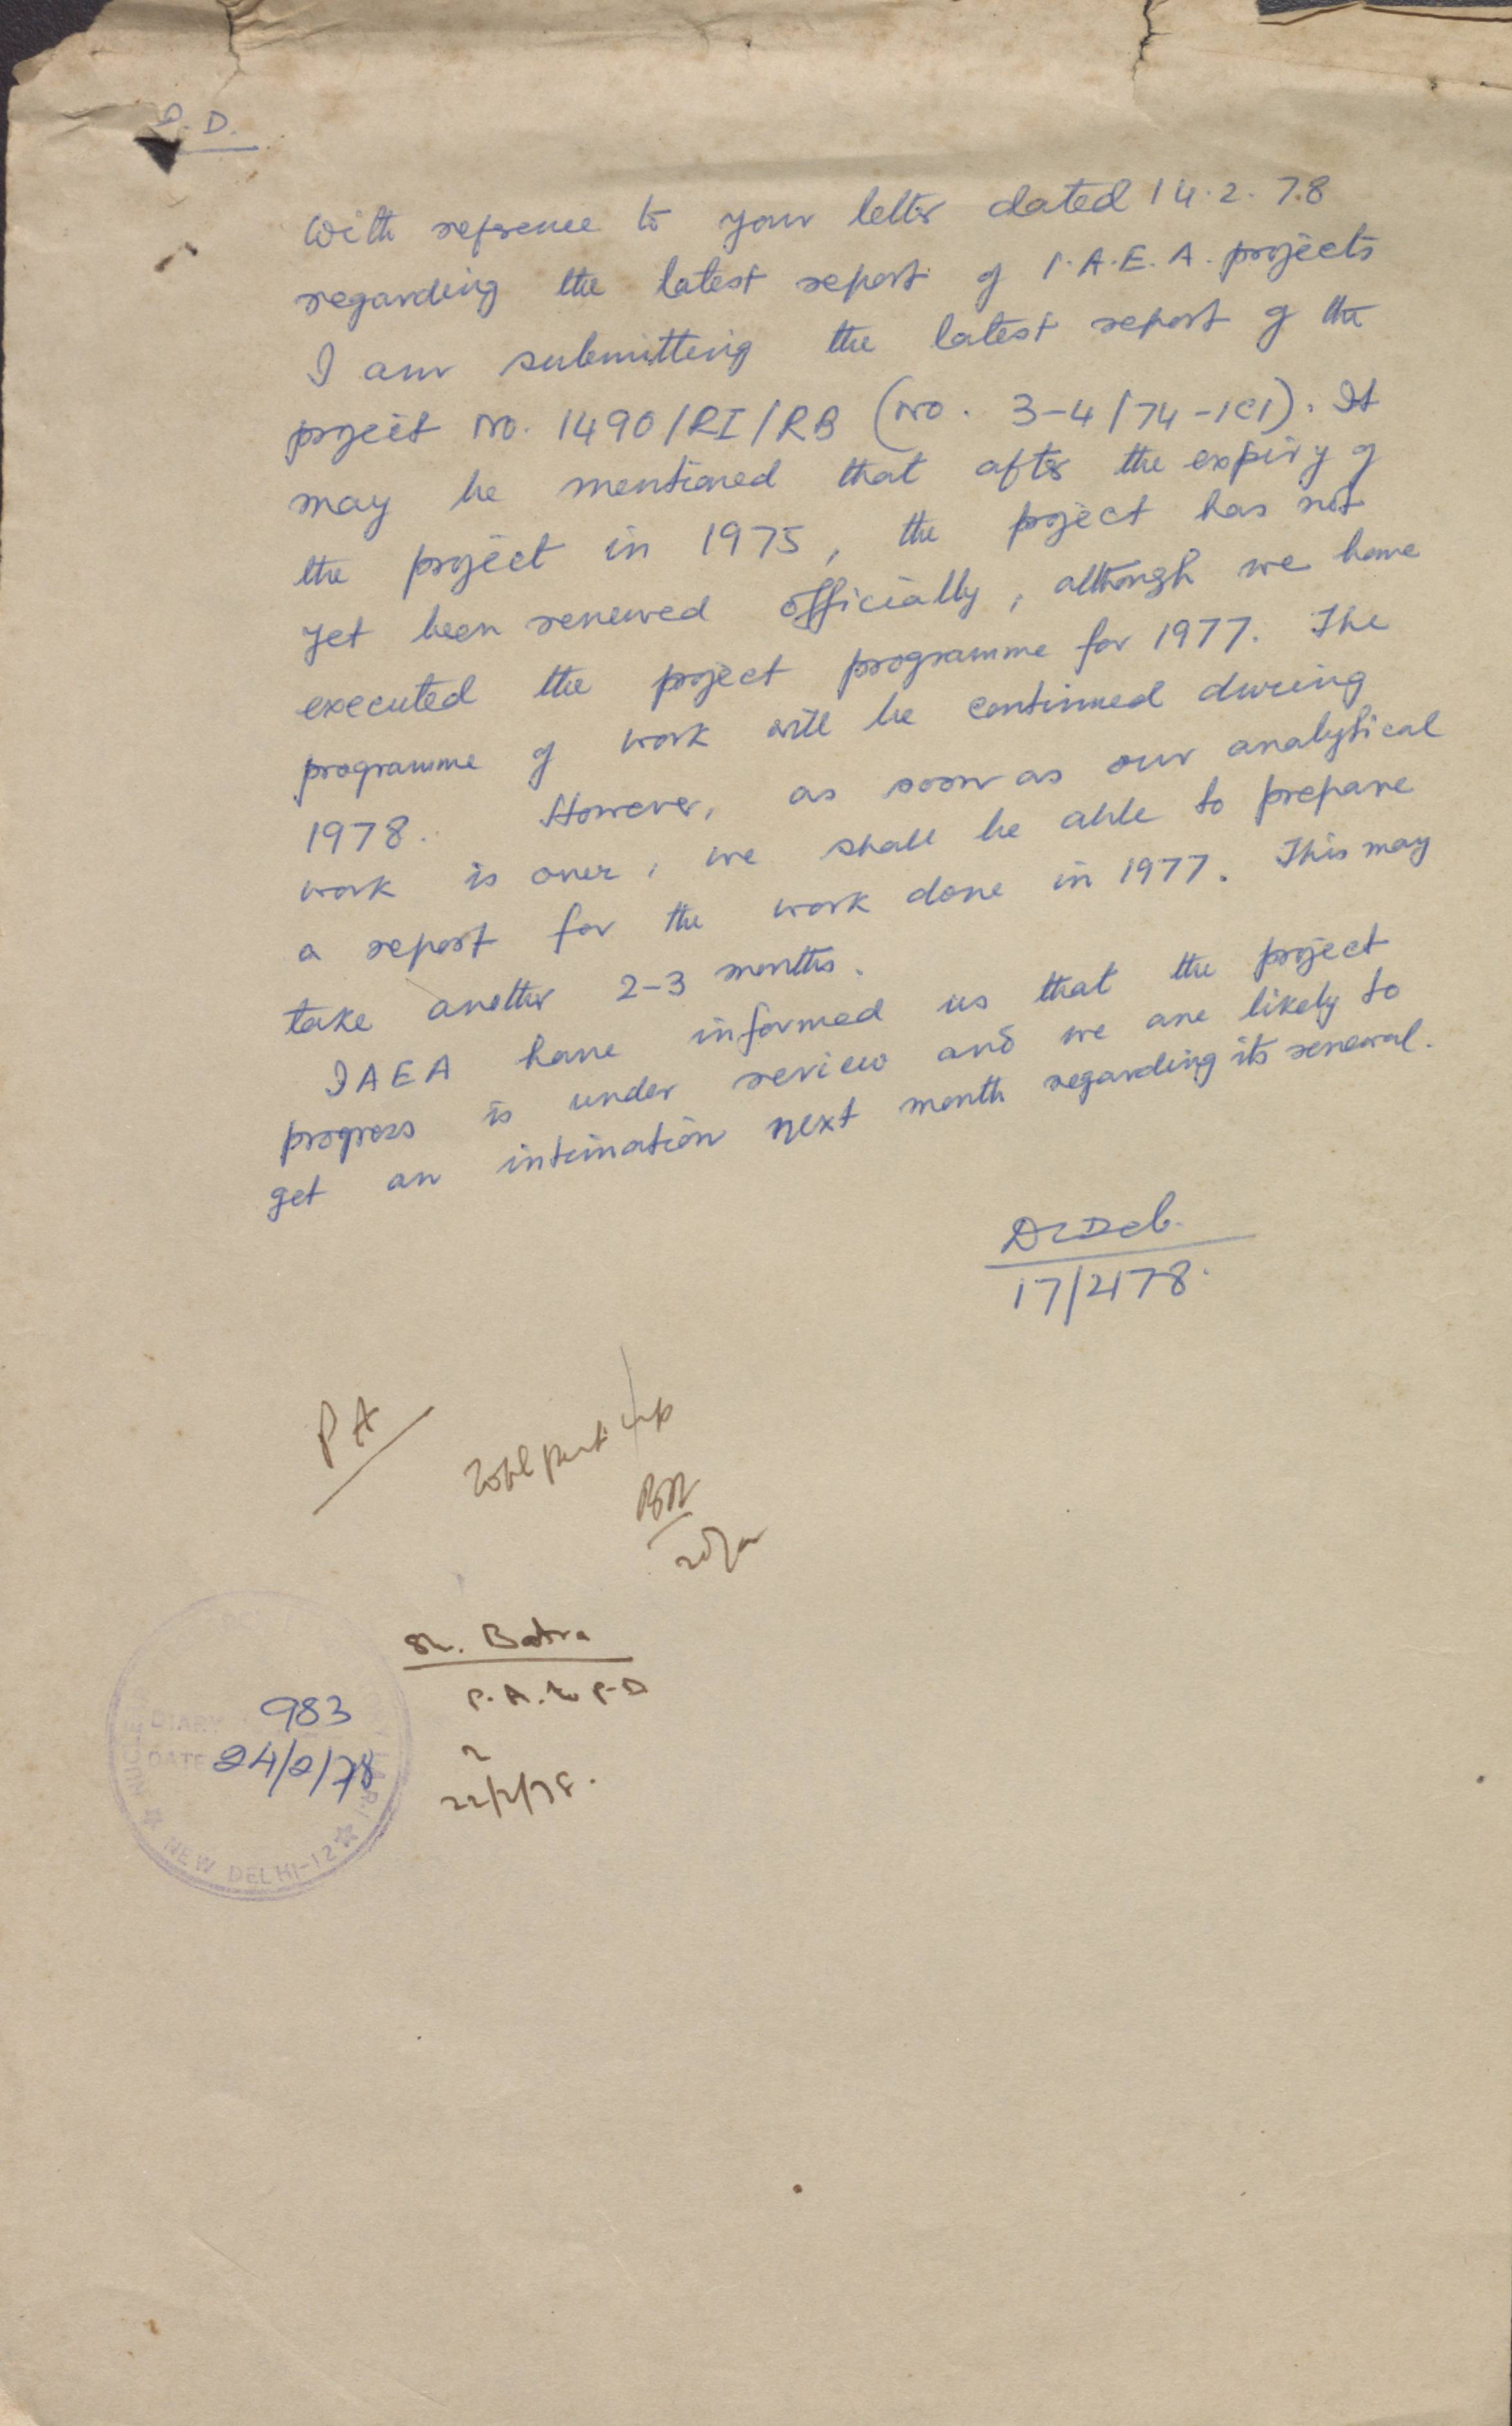 P. D.
With reference to your letter dated 14.2.78
regarding the latest report of I.A.E.A. projects
I am submitting the latest report of the
project No. 1490/RI/RB (No. 3-4/74-ICI). It
may be mentioned that after the expiry of
the project in 1975, the project has not
yet been renewed officially, although we have
executed the project programme for 1977. The
programme of work will be continued during
1978. However, as soon as our analytical
work is over, we shall be able to prepare
a report for the work done in 1977. This may
take another 2-3 months.
IAEA have informed us that the project
progress is under review and we are likely to
get an intimation next month regarding its renewal.
DLDeb.
17/2/78.
PA
put up
Sh. Batra
P.A. to P.D
22/2/78.
983
DIARY
DATE 24/2/78
NUCLEAR
I.A.R.I
NEW DELHI-12